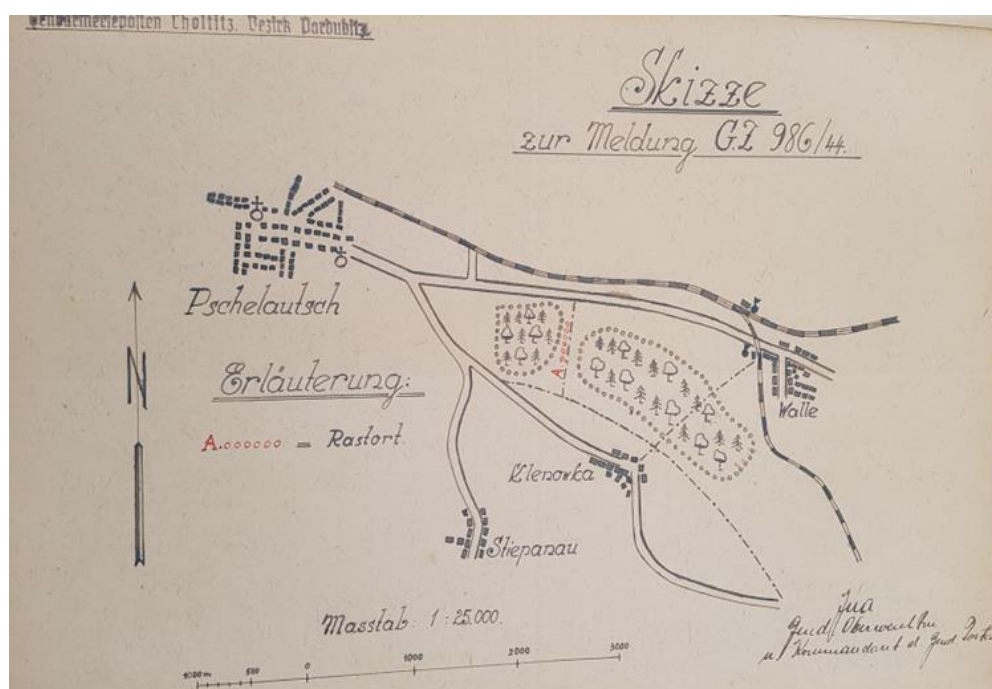 Gendarmerieposten Choltitz, Bezirk Pardubitz
Skizze
zur Meldung G.Z 986/44.
Pschelautsch
N
Erläuterung:
A.oooooo = Rastort.
A.
Walle
Klenowka
Stiepanau
Masstab: 1:25.000.
1000 m 500 0 1000 2000 3000
Gend. Oberwachtm
u. Kommandant d. Gend